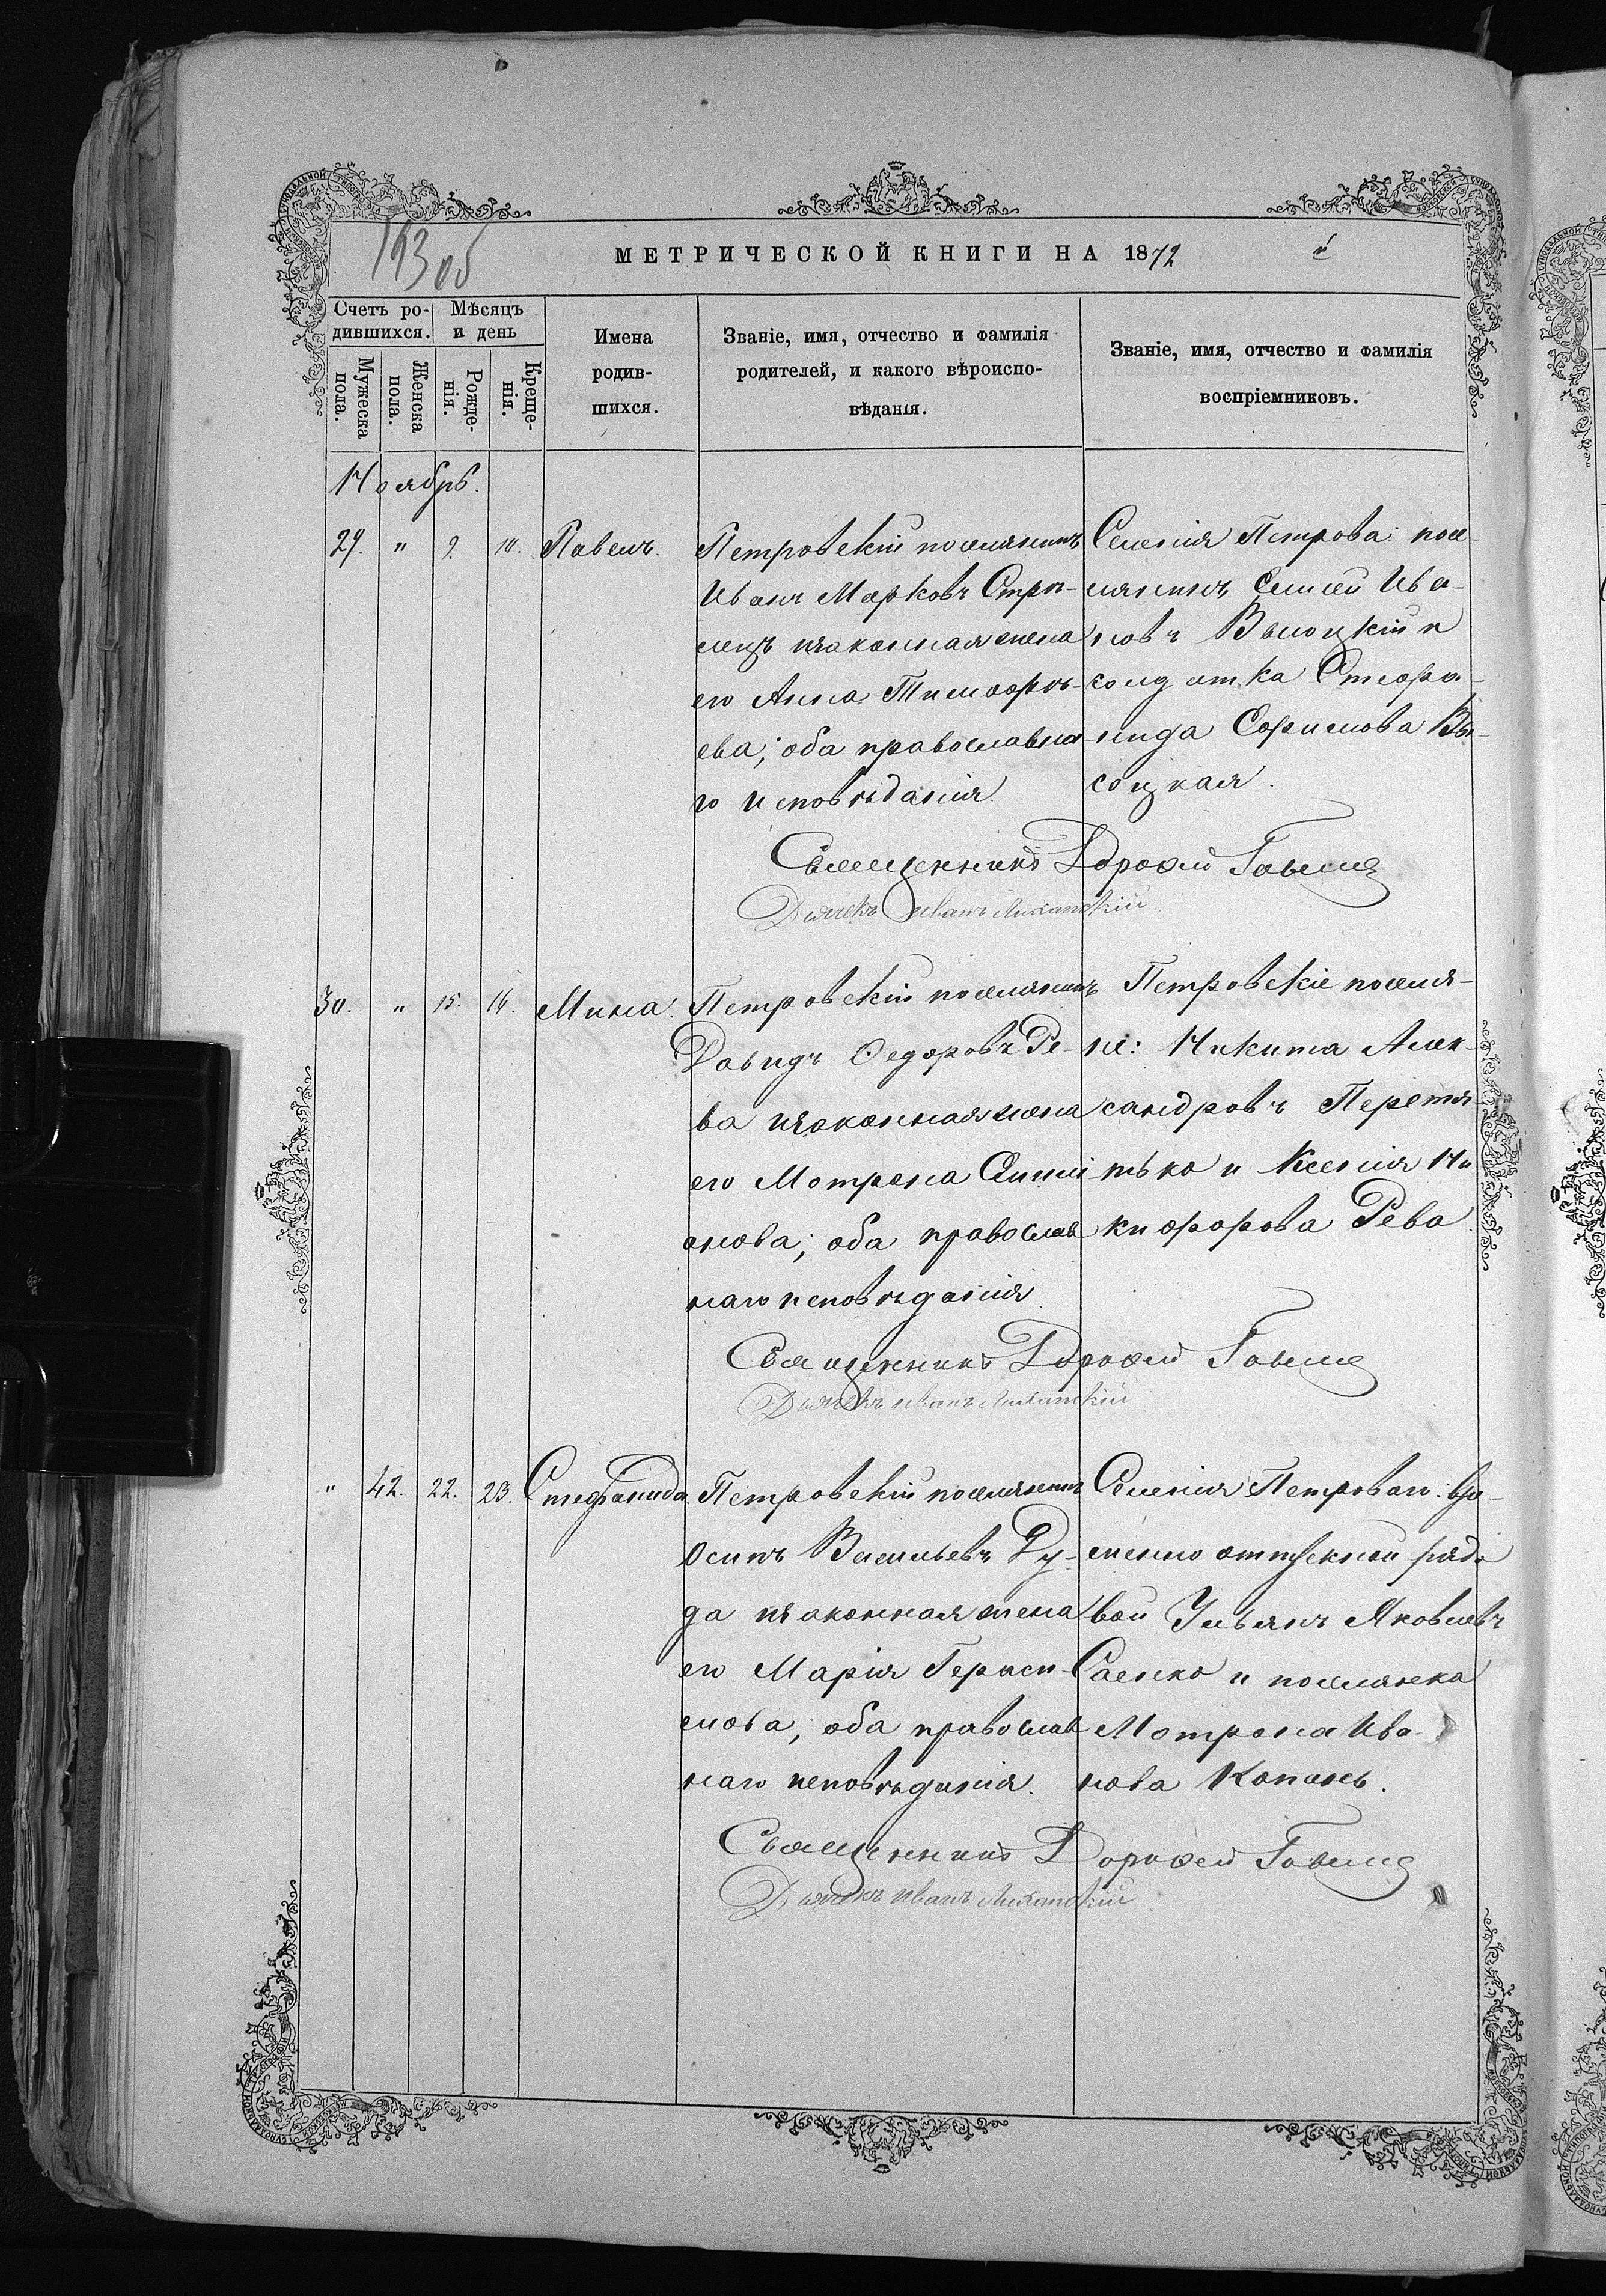 193 об
МЕТРИЧЕСКОЙ КНИГИ НА 1872
Счетъ ро-
дившихся.
Мѣсяцъ
и день
Мужеска
пола.
Женска
пола.
Рожде-
нія.
Креще-
нія.
Имена
родив-
шихся.
Званіе, имя, отчество и фамилія
родителей, и какого вѣроиспо-
вѣданія.
Званіе, имя, отчество и фамилія
воспріемниковъ.
Ноябрь.
29. " 9. 10. Павелъ.
Петровскій поселянинъ
Иванъ Марковъ Стрѣ-
лецъ изаконная жена
его Анна Тимофѣ-
ева; оба православна
го исповѣданія.
Селенія Петрова: посе-
лянинъ Ива-
новъ Высоцкій и
солдатка Стефа-
нида Ефимова Вы-
соцкая.
Священникъ Дорофей
Дьячекъ Иванъ
30. " 15. 16. Мина.
Петровскій поселянинъ
Давидъ Федоровъ Ре-
ва изаконная жена
его Мотрона
онова; оба православ
наго исповѣданія
Петровскіе поселя-
не: Никита Алек-
сандровъ Перетя-
тько и Ксенія Ни
кифорова Рева
Священникъ Дорофей
Дьячекъ Иванъ
" 42. 22. 23. Стефанида
Петровскій поселянинъ
Осипъ Васильевъ Ду-
да изаконная жена
его Марія Гераси-
мова; оба православ
наго исповѣданія.
Селенія Петроваго: вре-
менно отпускной рядо
вой Ульянъ Яковлевъ
Саенко и поселянка
Мотрона Ива-
нова Копань.
Священникъ Дорофей
Дьячекъ Иванъ